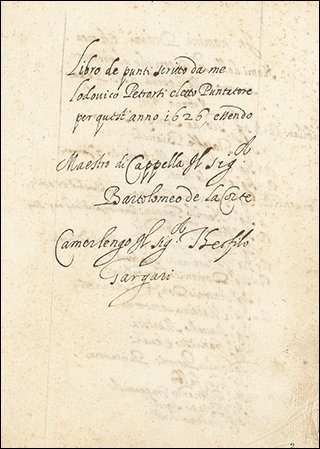 Libro de punti scritto da me
Lodovico Petrorti eletto Puntatore
per quest' anno 1626, essendo
Maestro di Cappella Il sig.r
Bartolomeo de la Corte
Camerlengo Il sig.r Theofilo
Gargari